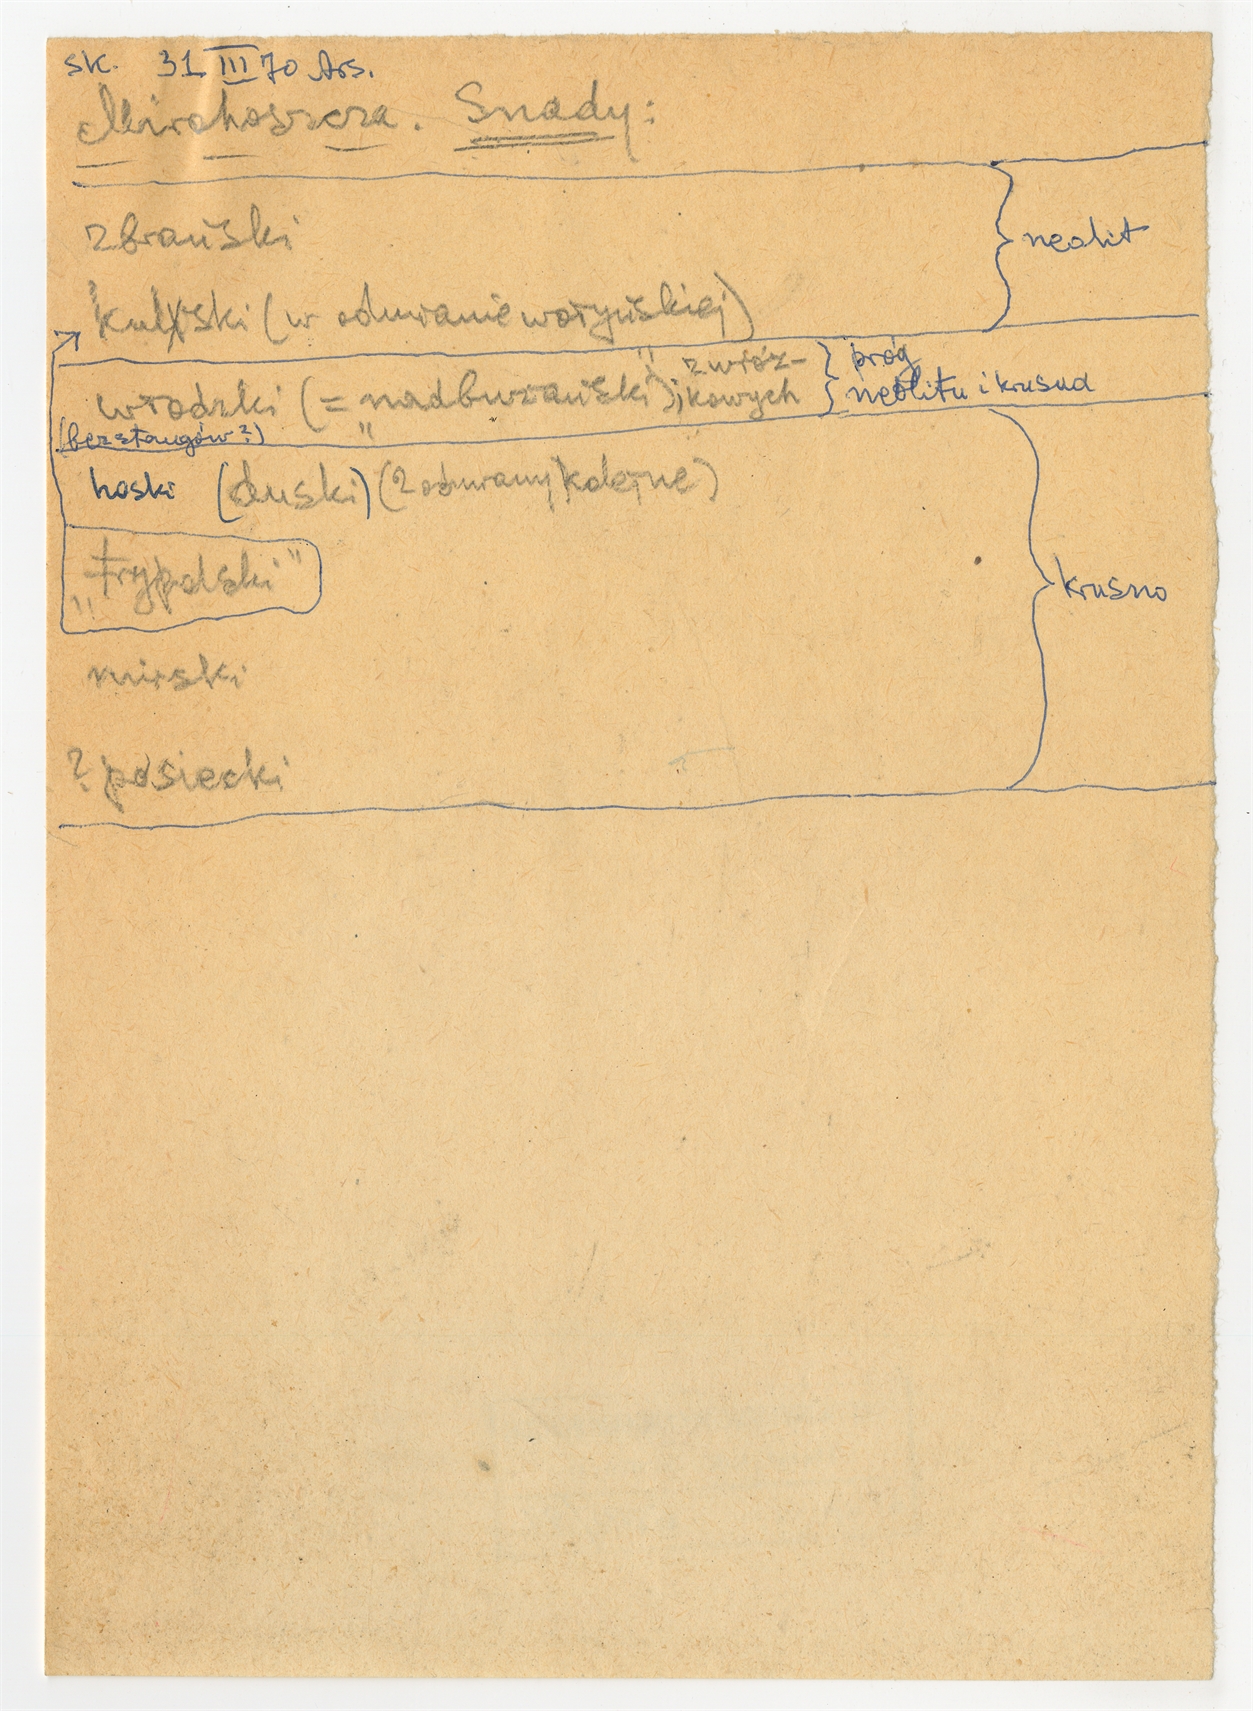 sk. 31 III 70 Ars.
Mirohoszcza. Snady:
zbrański
neolit
kulski (w odmianie wołyńskiej)
wrodzki (= „nadbużański”); z wróż-
kowych
próg
neolitu i krusud
(bez stęugów?)
hoski (duski) (2 odmiany kolejne)
„trypolski”
krusno
mirski
? posiecki